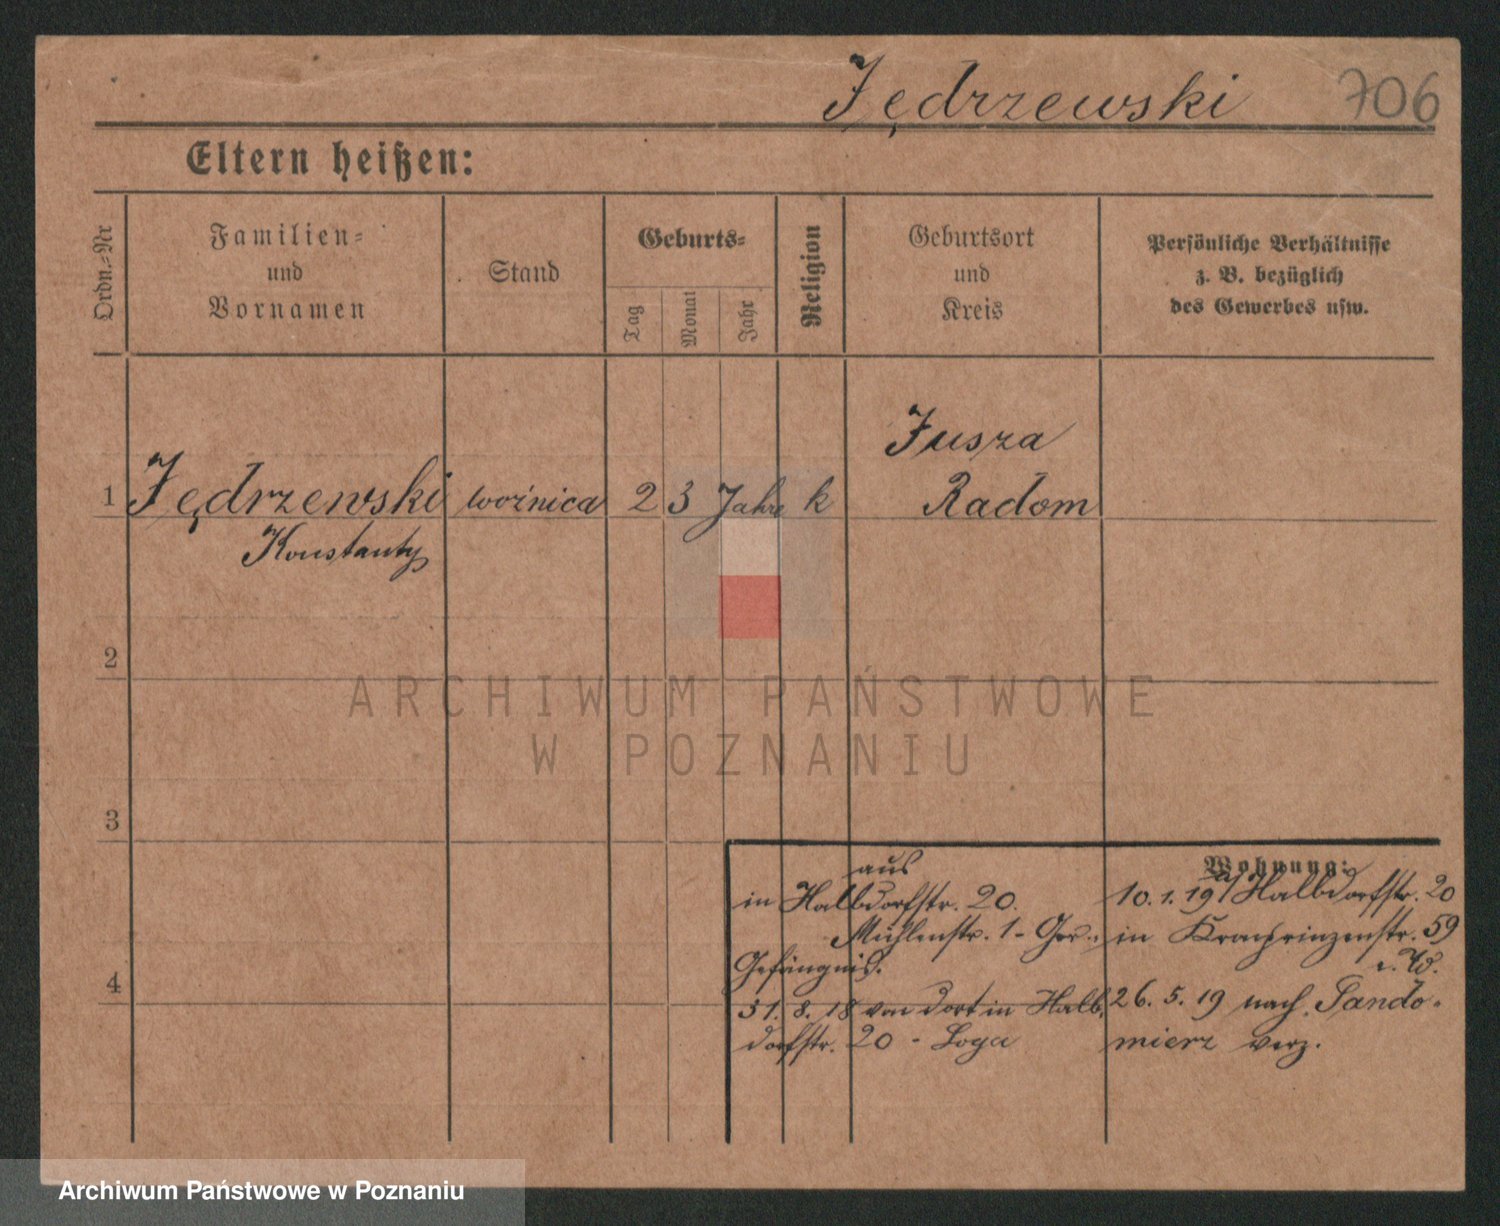 Jędrzewski 706
Eltern heißen:
Ordn.-Nr
Familien-
und
Vornamen
Stand
Geburts-
Tag
Monat
Jahr
Religion
Geburtsort
und
Kreis
Persönliche Verhältnisse
z. B. bezüglich
des Gewerbes usw.
Jusza
1 Jędrzewski woźnica 23 Jahre k Radom
Konstanty
2
ARCHIWUM PAŃSTWOWE
W POZNANIU
3
4
aus
in Halbdorfstr. 20.
Mühlenstr. 1 - Ger.-
Gefängnis.
31. 8. 18 von dort in Halb-
dorfstr. 20 - Loga
Wohnung:
10. 1. 19 Halbdorfstr. 20
in Kronprinzenstr. 59
26. 5. 19 nach Sando-
mierz verz.
Archiwum Państwowe w Poznaniu